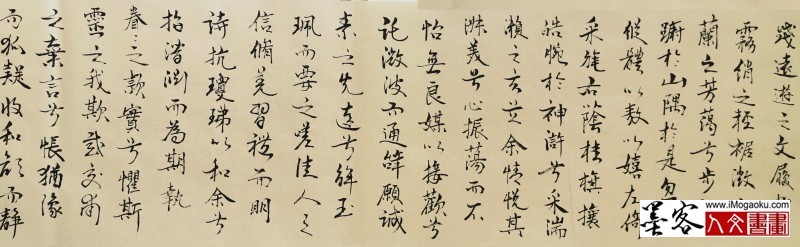 踐遠遊之文履
霧綃之輕裾微
蘭之芳藹兮步
躕於山隅於是忽
縱體以遨以嬉左倚
采旄右蔭桂旗攘
皓腕於神滸兮采湍
瀨之玄芝余情悅其
淑美兮心振蕩而不
怡無良媒以接歡兮
託微波而通辭願誠
素之先達兮解玉
珮而要之嗟佳人之
信脩羌習禮而明
詩抗瓊珶以和余兮
指潛淵而為期執
眷々之款實兮懼斯
靈之我欺感交甫
之棄言兮悵猶豫
而狐疑收和顏而靜
墨客
www.iMogaoku.com
人文書畫